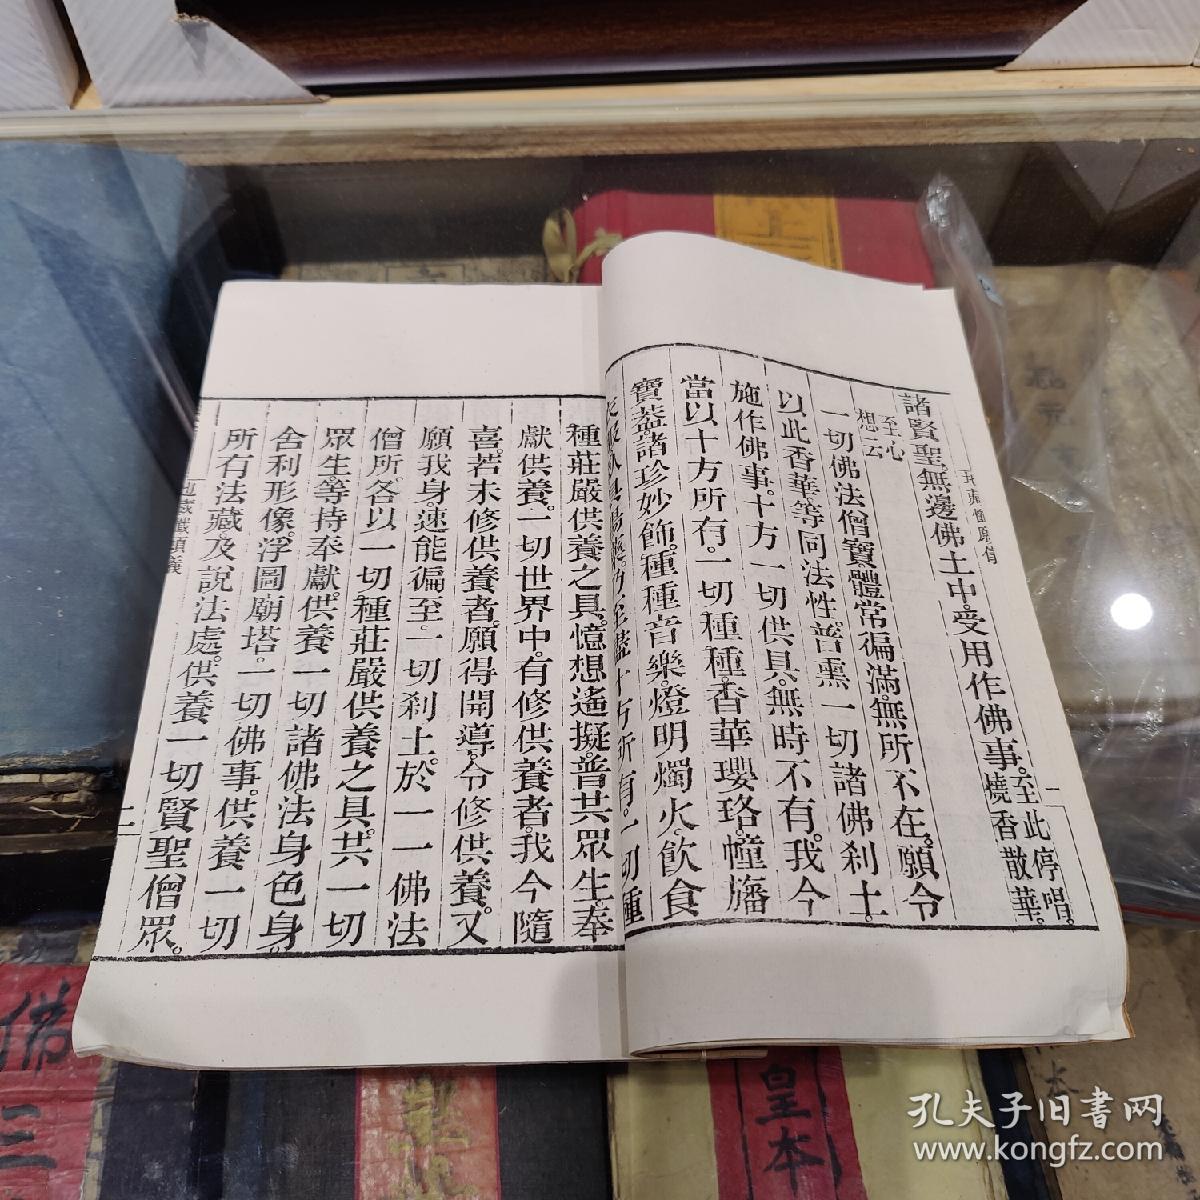 諸賢聖無邊佛土中受用作佛事至此停唱燒香散華
至心想云
一切佛法僧寶體常徧滿無所不在願令
以此香華等同法性普熏一切諸佛刹土
施作佛事十方一切供具無時不有我今
當以十方所有一切種種香華瓔珞幢旛
寶葢諸珍妙飾種種音樂燈明燭火飲食
十方所有一切種
種莊嚴供養之具憶想遙擬普共眾生奉
獻供養一切世界中有修供養者我今隨
喜若未修供養者願得開導令修供養又
願我身速能徧至一切刹土於一一佛法
僧所各以一切種莊嚴供養之具共一切
眾生等持奉獻供養一切諸佛法身色身
舍利形像浮圖廟塔一切佛事供養一切
所有法藏及說法處供養一切賢聖僧眾
二
皇本
三
孔夫子旧书网
www.kongfz.com